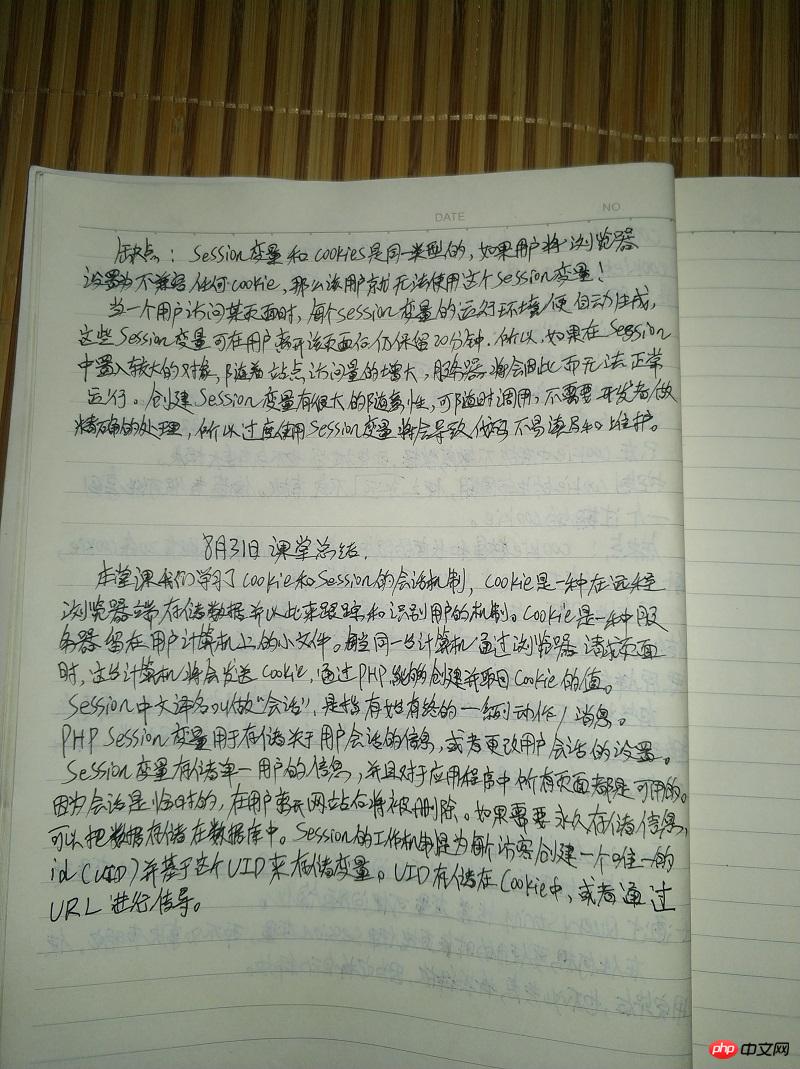 DATE
NO
缺点：Session变量和cookies是同一类型的，如果用户将浏览器
设置为不兼容任何cookie，那么该用户就无法使用这个Session变量！
当一个用户访问某页面时，每个Session变量的运行环境便自动生成，
这些Session变量可在用户离开该页面后仍保留20分钟．所以，如果在Session
中置入较大的对象，随着站点访问量的增大，服务器将会因此而无法正常
运行。创建Session变量有很大的随意性，可随时调用，不需要开发者做
精确的处理，所以过度使用Session变量将会导致代码不易读且和维护。
8月31日 课堂总结．
本堂课我们学习了cookie和Session的会话机制，cookie是一种在远程
浏览器端存储数据并以此来跟踪和识别用户的机制。Cookie是一种服
务器留在用户计算机上的小文件。每当同一台计算机通过浏览器请求页面
时，这台计算机将会发送cookie，通过PHP能够创建并取回cookie的值。
Session中文译名叫做“会话”，是指有始有终的一系列动作/消息。
PHP Session变量用于存储关于用户会话的信息，或者更改用户会话的设置。
Session变量存储单一用户的信息，并且对于应用程序中所有页面都是可用的。
因为会话是临时的，在用户离开网站后将被删除。如果需要永久存储信息，
可以把数据存储在数据库中。Session的工作机制是为每个访客创建一个唯一的
id（UID）并基于这个UID来存储变量。UID存储在Cookie中，或者通过
URL进行传导。
php中文网